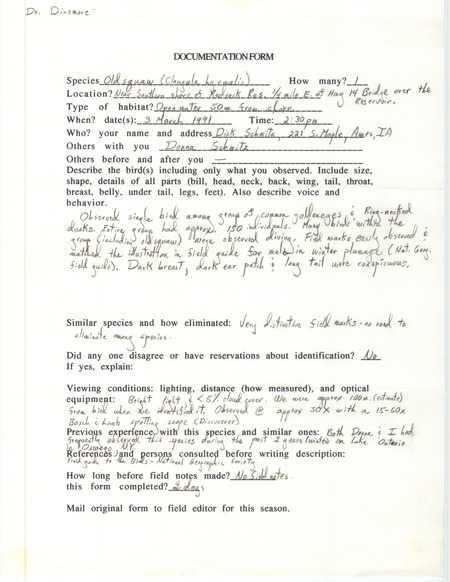 Dr. Dinsmore:
DOCUMENTATION FORM
Species Oldsquaw (Clangula hyemalis) How many? 1
Location? Near Southern shore of Redrock Res. 1/4 mile E. of Hwy 14 Bridge over the
Reservoir.
Type of habitat? Open water 50m from shore
When? date(s): 3 March 1991 Time: 2:30pm
Who? your name and address Dick Schmitz, 221 S. Maple, Ames, IA
Others with you Donna Schmitz
Others before and after you —
Describe the bird(s) including only what you observed. Include size,
shape, details of all parts (bill, head, neck, back, wing, tail, throat,
breast, belly, under tail, legs, feet). Also describe voice and
behavior.
Observed single bird among group of common goldeneyes & Ring-necked
ducks. Entire group had approx. 150 individuals. Many birds within the
group (including oldsquaw) were observed diving. Field marks easily observed &
matched the illustration in field guide for male in winter plumage (Nat. Geog.
field guide). Dark breast, dark ear patch & long tail were conspicuous.
Similar species and how eliminated: Very distinctive field marks - no need to
eliminate among species.
Did any one disagree or have reservations about identification? No
If yes, explain:
Viewing conditions: lighting, distance (how measured), and optical
equipment: Bright light & <5% cloud cover. We were approx 100m (estimate)
from bird when we identified it. Observed @ approx 30X with a 15-60x
Bosch & Lomb spotting scope (Discoverer)
Previous experience with this species and similar ones: Both Donna & I had
frequently observed this species during the past 2 years (winters) on Lake Ontario
in Oswego, NY.
References and persons consulted before writing description:
Field guide to the Birds - National Geographic Society
How long before field notes made? No field notes
this form completed? 2 days
Mail original form to field editor for this season.